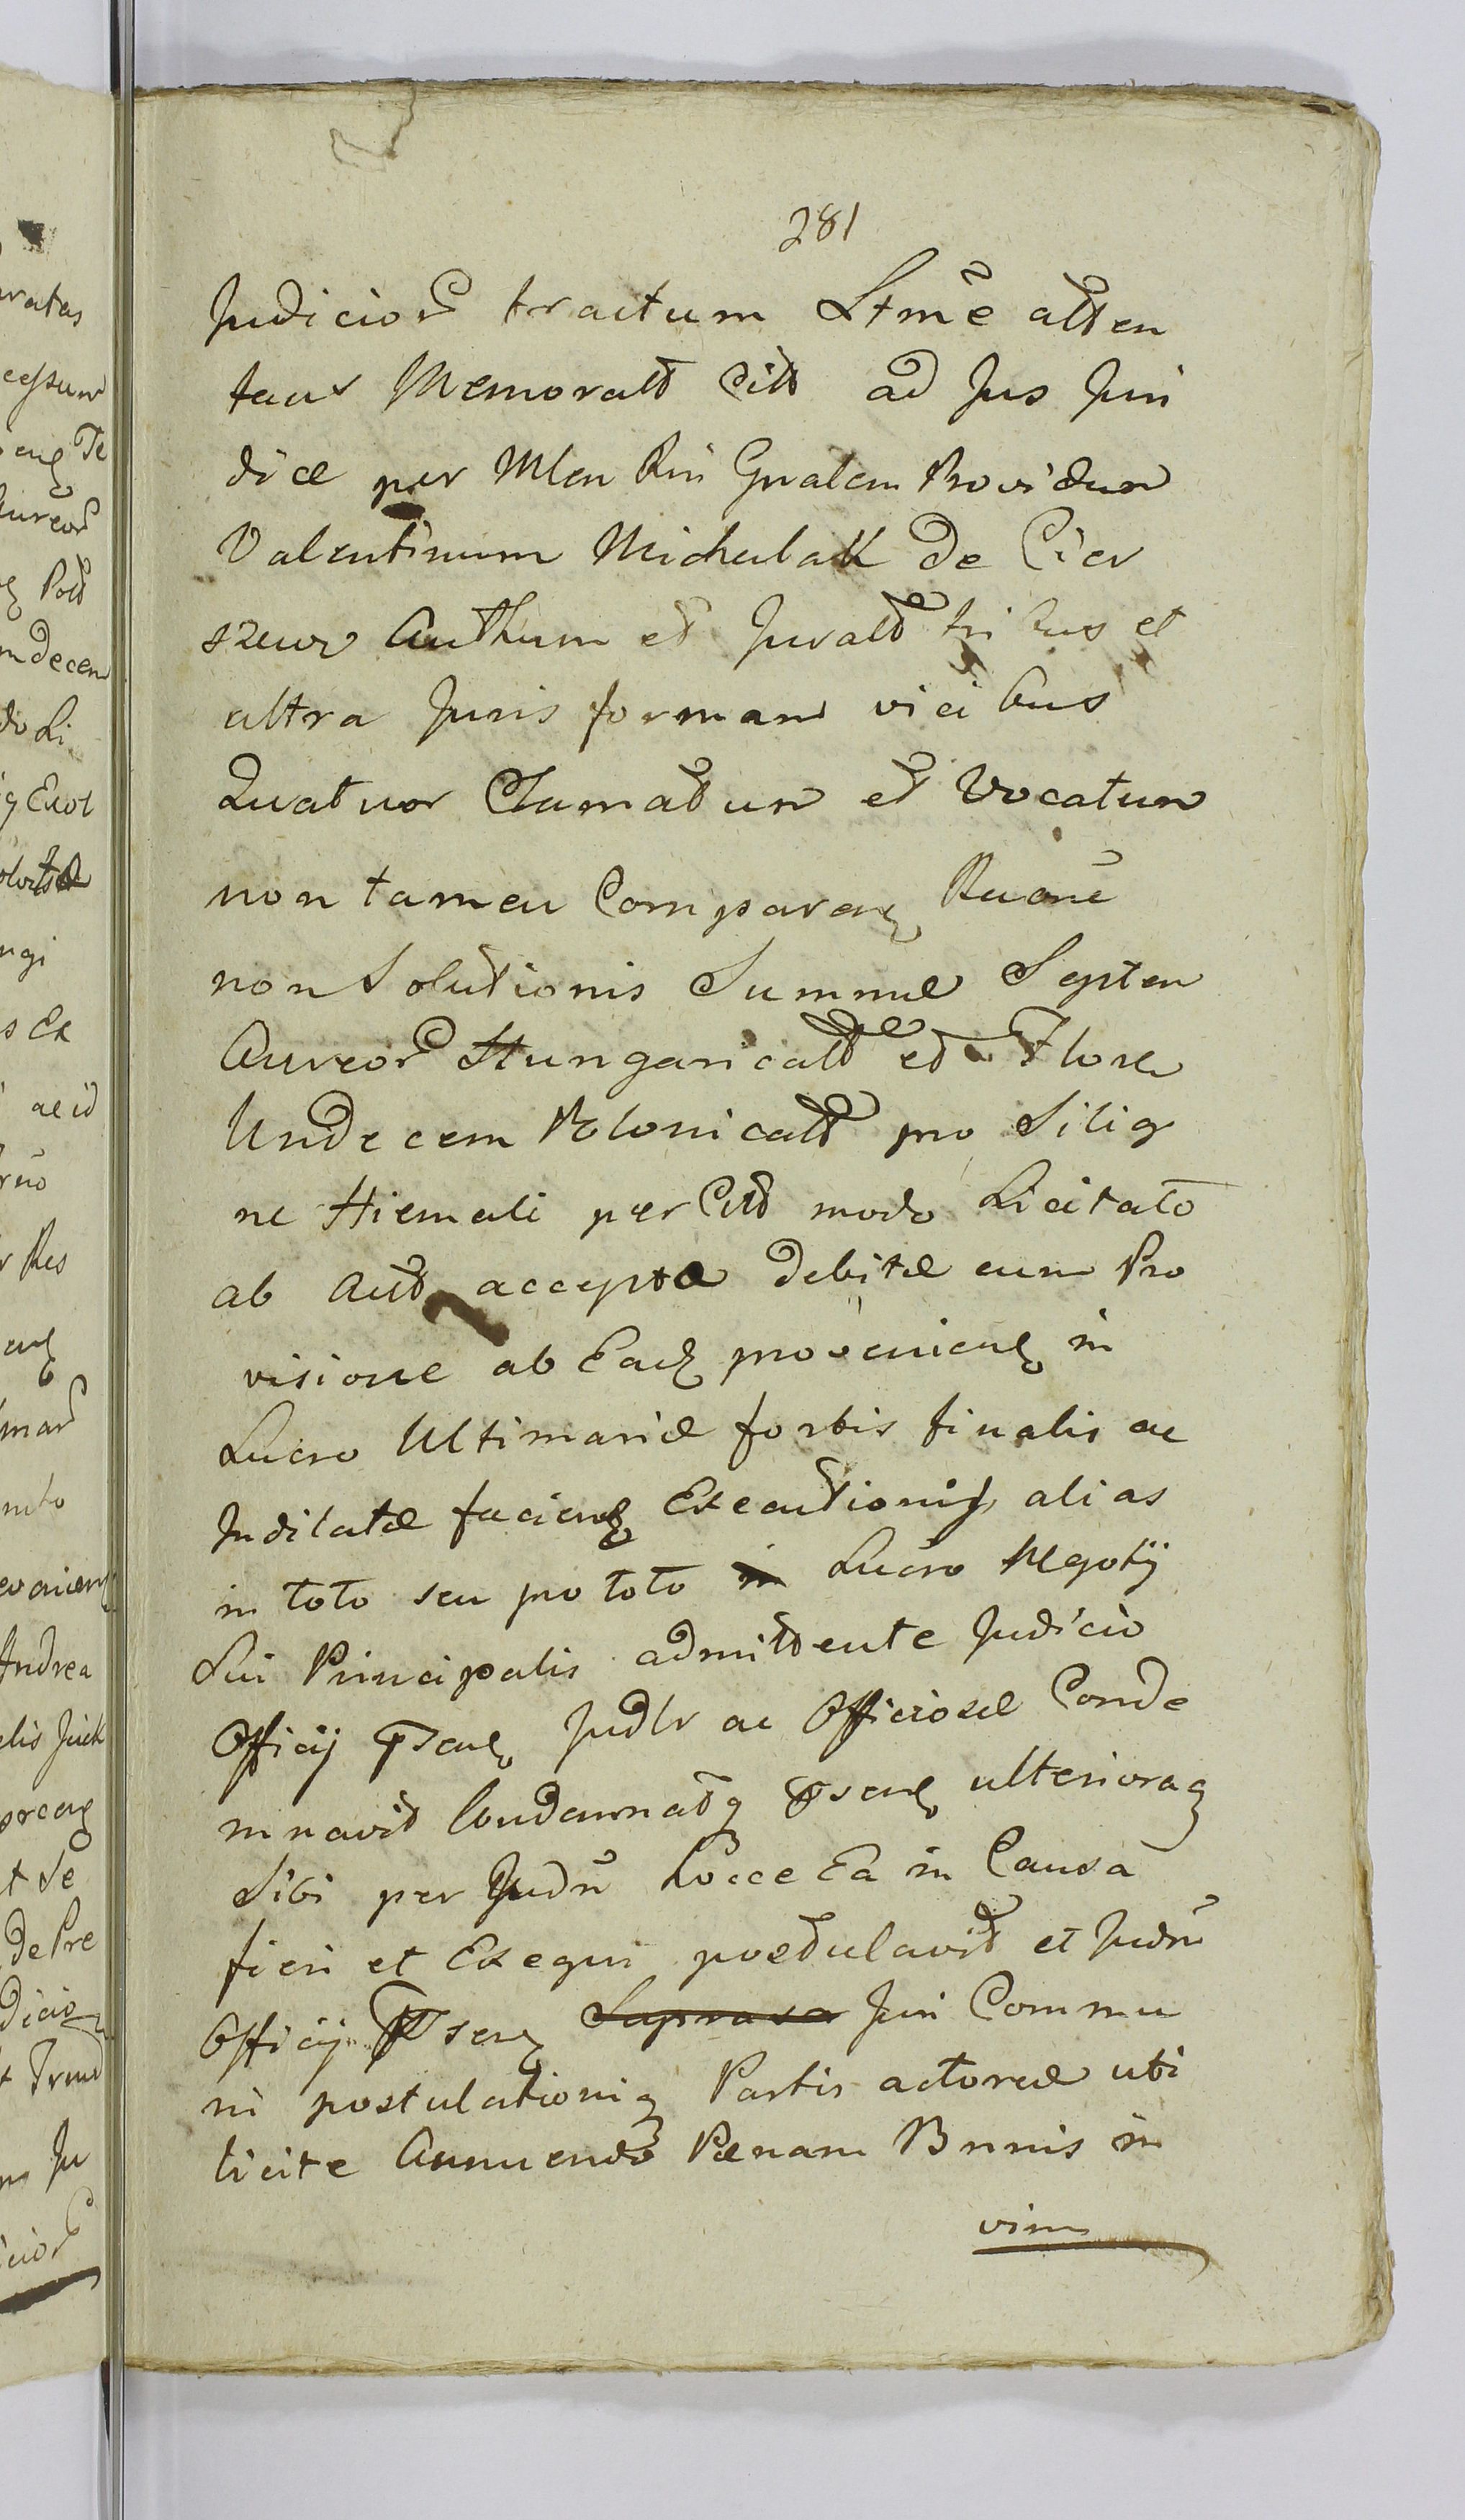 281
Judicior tractum Ltmē atten
tans Memoratt Citt ad Jus Juri
dice per Mlen Rni Gnalem Providum
Valentinum Michalak de Cier
szewo Authum et Juratt tribus et
ultra Juris formam vicibus
Quatuor Clamatum et Vocatum
non tamen Comparen Raōnē
non Solutionis Summæ Septem
Aureor Hungaricatt et Floren
Undecem Polonicatt pro Silig
ne Hiemali per Citt modo Licitato
ab Actt acceptæ debitæ cum Pro
visione ab Ead provenienq in
Lucro Ultimariæ fortis finalis ac
Indilatæ faciend Executionis alias
in toto seu pro toto in Lucro Negotij
Sui Principalis admittente Judicio
Officij Psenq Judlr ac Officiose Conde
mnavit Condemnatq Psenq ulterioraq
Sibi per Judm hocce Ea in Causa
fieri et Exequi postulavit et Judm
Officij Psenq Supraxa Juri Commu
ni postulationiq Partis actoreæ uti
licite Annuendo Pænam Bnnis in
vim
ratas
cessum
enq Te
Aureor
Pott
mdecem
do Li
ngi
s Ex
ac id
r Res
Andrea
t Se
de Pre
Ju
icior